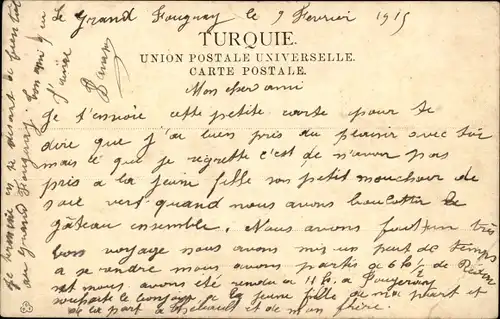 Le Grand Fougray le 9 Fevrier 1915
TURQUIE.
UNION POSTALE UNIVERSELLE.
CARTE POSTALE.
Mon cher ami
Je t'envoie cette petite carte pour te
dire que j'ai bien pris du plaisir avec toi
mais ce que je regrette c'est de n'avoir pas
pris a la jeune fille son petit mouchoir de
soie vert quand nous avons boulotter le
gâteau ensemble. Nous avons fait un très
bon voyage nous avons mis un peut de temps
a se rendre nous avons partis de 6 h 1/2 de
et nous avons été rendu a 11 h. a Fougeray
souhaite le bonjour a la jeune fille de ma part et
de la part a et de mon frère.
Je termine en te disant de bientôt
au grand Fougeray. ton ami qui
t'aime